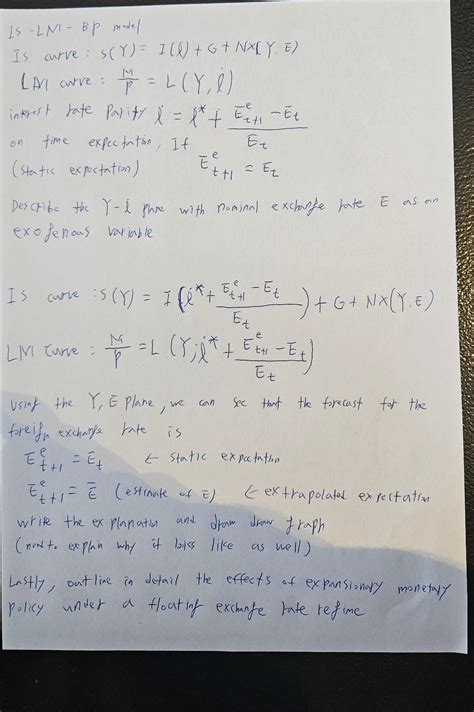 IS-LM-BP model
IS curve : S(Y) = I(i) + G + NX(Y, E)
LM curve : M/P = L(Y, i)
interest rate parity i = i* + (E^e_{t+1} - E_t)/E_t
on time expectation, If
(static expectation) E^e_{t+1} = E_t
Describe the Y-i plane with nominal exchange rate E as an
exogenous variable
IS curve : S(Y) = I(i* + (E^e_{t+1} - E_t)/E_t) + G + NX(Y, E)
LM curve : M/P = L(Y, i* + (E^e_{t+1} - E_t)/E_t)
using the Y, E plane, we can see that the forecast for the
foreign exchange rate is
E^e_{t+1} = E_t ← static expectation
E^e_{t+1} = Ē (estimate of E) ← extrapolated expectation
write the explanation and draw draw graph
(need to explain why it looks like as well)
Lastly, outline in detail the effects of expansionary monetary
policy under a floating exchange rate regime